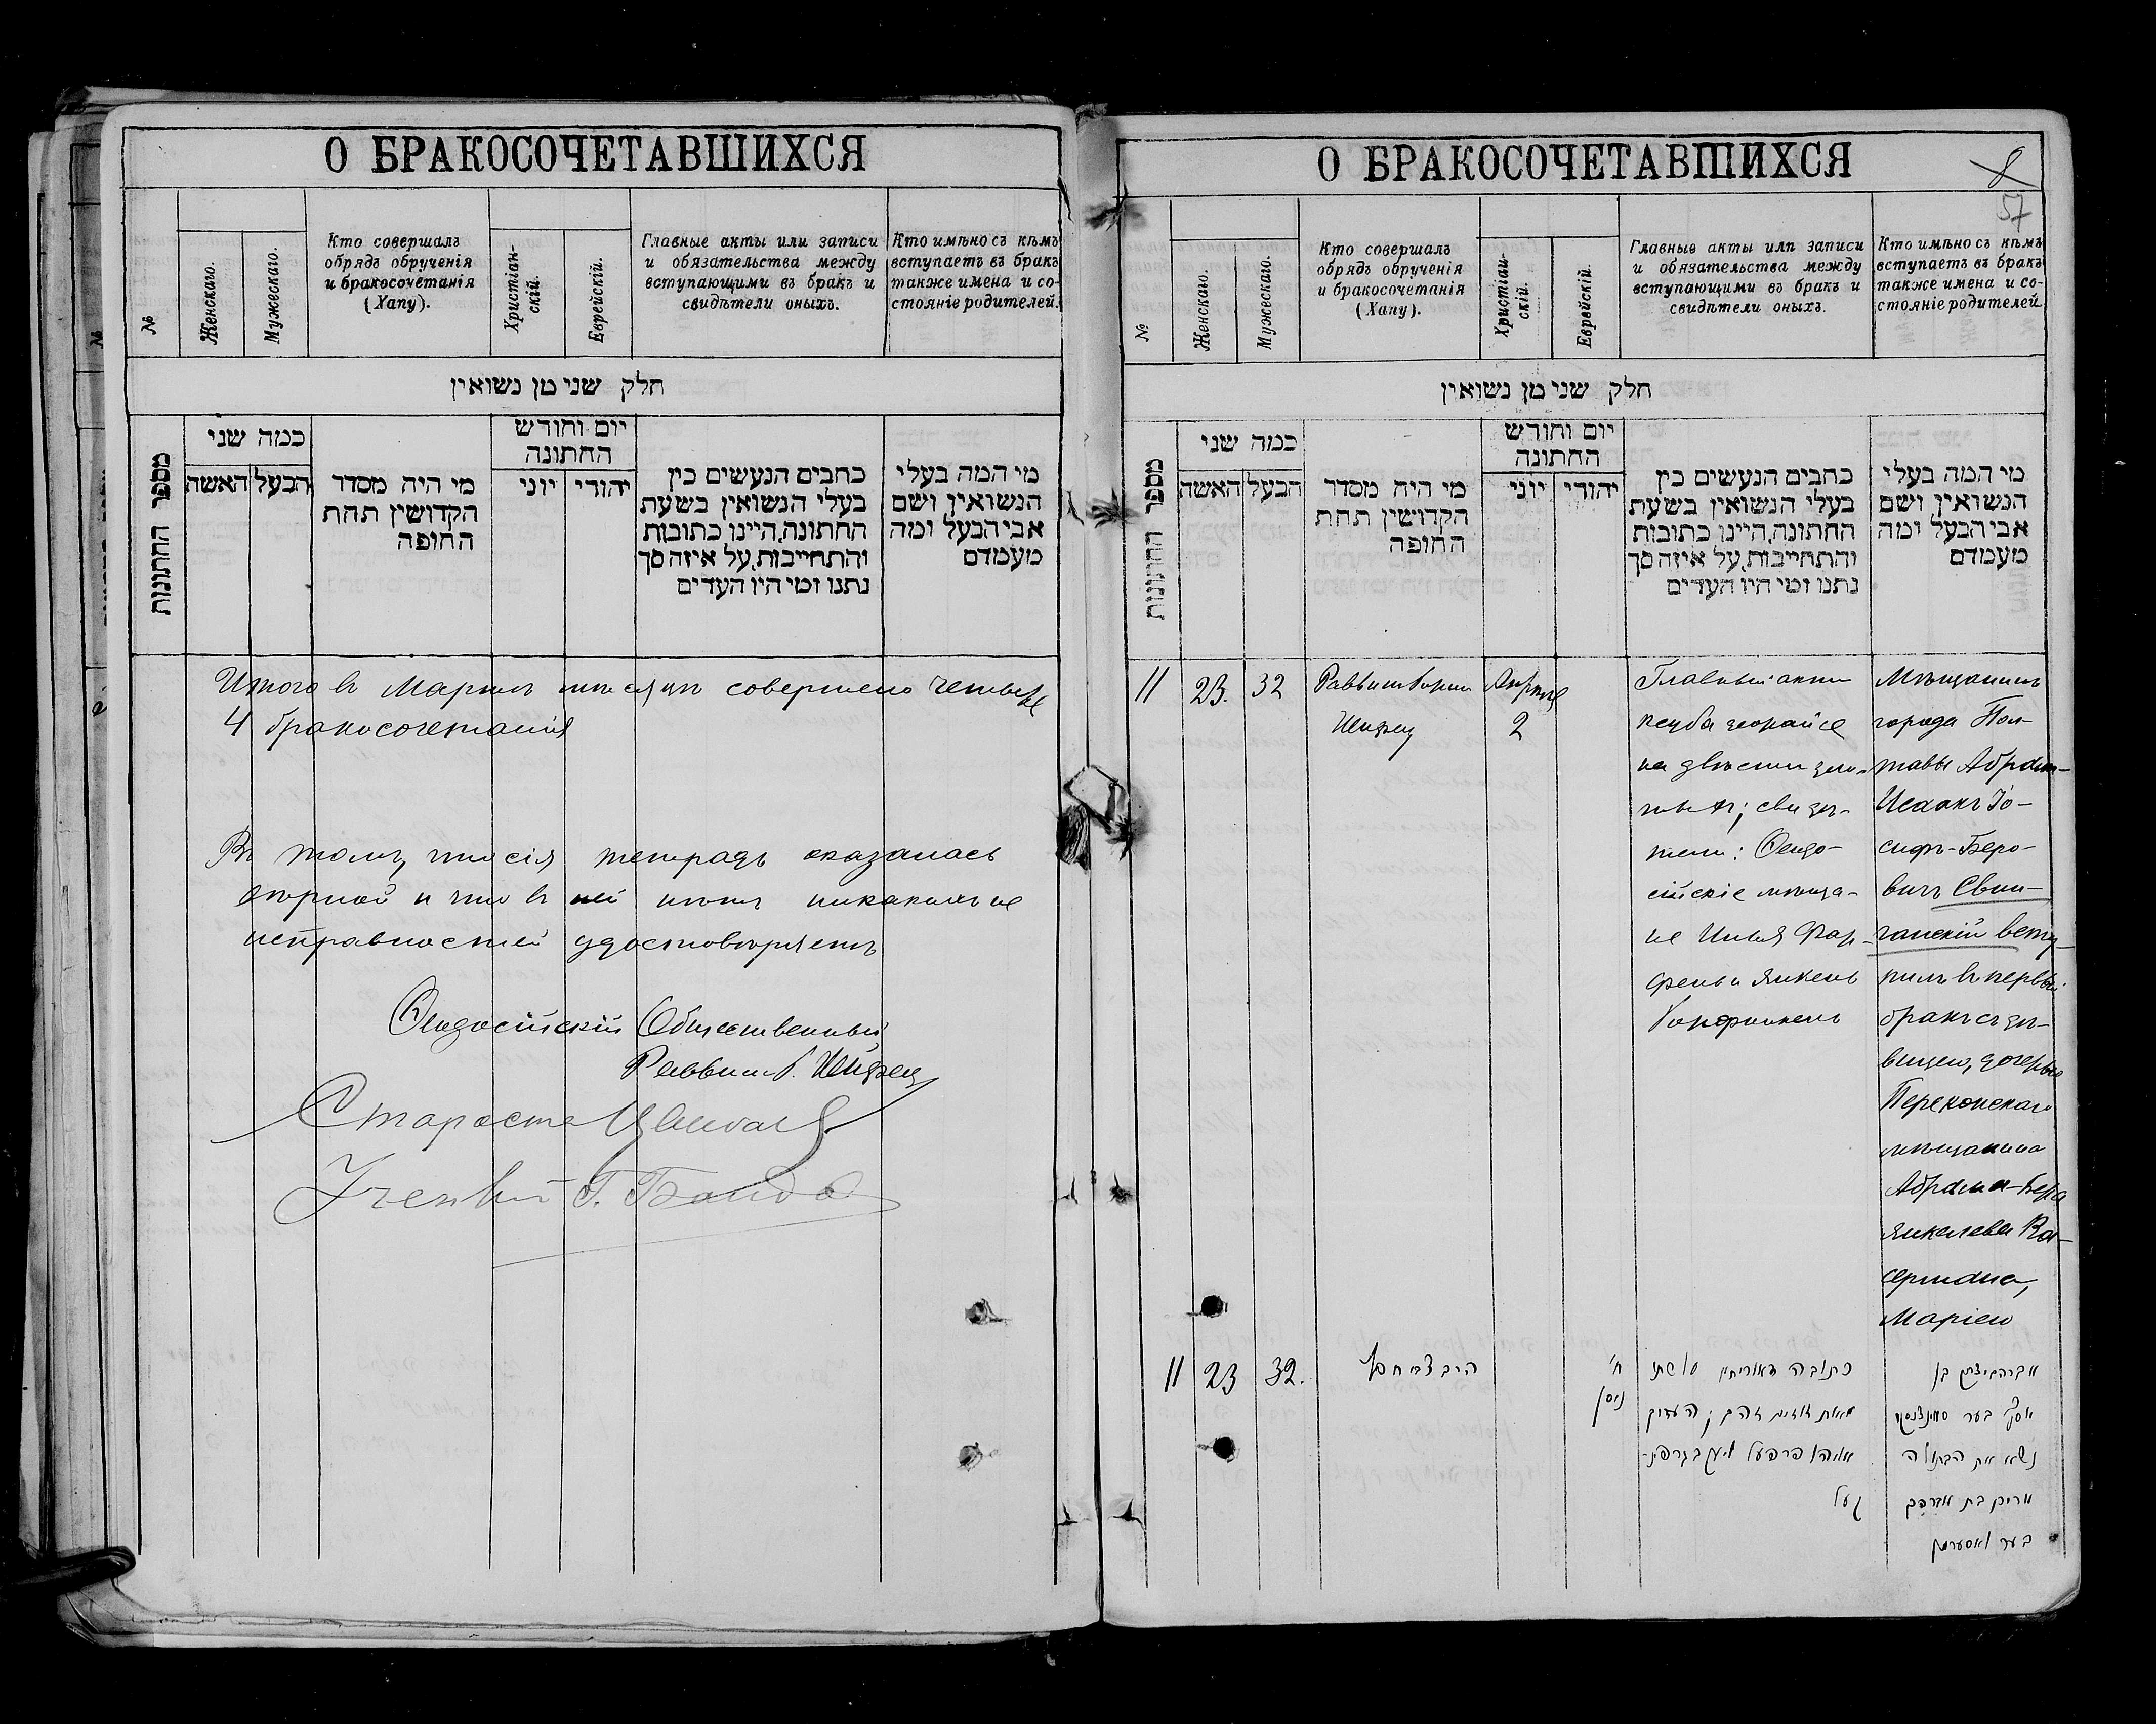 О БРАКОСОЧЕТАВШИХСЯ
№
Женскаго.
Мужескаго.
Кто совершалъ
обрядъ обрученія
и бракосочетанія
(Хапу).
Христіан-
скій.
Еврейскій.
Главные акты или записи
и обязательства между
вступающими въ бракъ и
свидѣтели оныхъ.
Кто имѣно съ кѣмъ
вступаетъ въ бракъ
также имена и со-
стояніе родителей.
חלק שני מן נשואין
מספר החתונות
כמה שני
האשה
הבעל
מי היה מסדר
הקדושין תחת
החופה
יום וחודש
החתונה
יוני
יהודי
כתבים הנעשים בין
בעלי הנשואין בשעת
החתונה, היינו כתובות
והתחייבות, על איזה סך
נתנו ומי היו העדים
מי המה בעלי
הנשואין, ושם
אבי הבעל ומה
מעמדם
Итого въ Мартѣ мѣсяцѣ совершено четыре
4 бракосочетанія
Въ томъ, что сія тетрадь оказалась
вѣрной и что въ ней нѣтъ никакихъ не
исправностей удостовѣряетъ
Ѳеодосійскій Общественный
Раввинъ Шифрец
Староста
Ученый Г.
О БРАКОСОЧЕТАВШИХСЯ
8
57
№
Женскаго.
Мужескаго.
Кто совершалъ
обрядъ обрученія
и бракосочетанія
(Хапу).
Христіан-
скій.
Еврейскій.
Главные акты или записи
и обязательства между
вступающими въ бракъ и
свидѣтели оныхъ.
Кто имѣно съ кѣмъ
вступаетъ въ бракъ
также имена и со-
стояніе родителей.
חלק שני מן נשואין
מספר החתונות
כמה שני
האשה
הבעל
מי היה מסדר
הקדושין תחת
החופה
יום וחודש
החתונה
יוני
יהודי
כתבים הנעשים בין
בעלי הנשואין בשעת
החתונה, היינו כתובות
והתחייבות, על איזה סך
נתנו ומי היו העדים
מי המה בעלי
הנשואין, ושם
אבי הבעל ומה
מעמדם
11
23.
32
Раввинъ
Апрѣля
2
Главный актъ
кецуба
на двѣсти зло-
тыхъ; свидѣ-
тели: Ѳеодо-
сійскіе мѣща-
не Илья Фар-
фель и Янкель
Мѣщанинъ
города Пол-
тавы Абрамъ-
Исаакъ Іо-
сифъ-Беро-
вичъ Свин-
чанскій всту-
пилъ въ первый
бракъ съ дѣ-
вицею, дочерью
Перекопскаго
мѣщанина
Абрама-Бера
Янкелева Ва-
сермана,
Маріею
11
23
32.
הרב
ח'
ניסן
כתובה
מאתים זהב; העדים
אליהו פרפעל
געל
אברהם יצחק בן
יוסף בער
נשא את הבתולה
מרים בת אברהם
בער וואסערמן